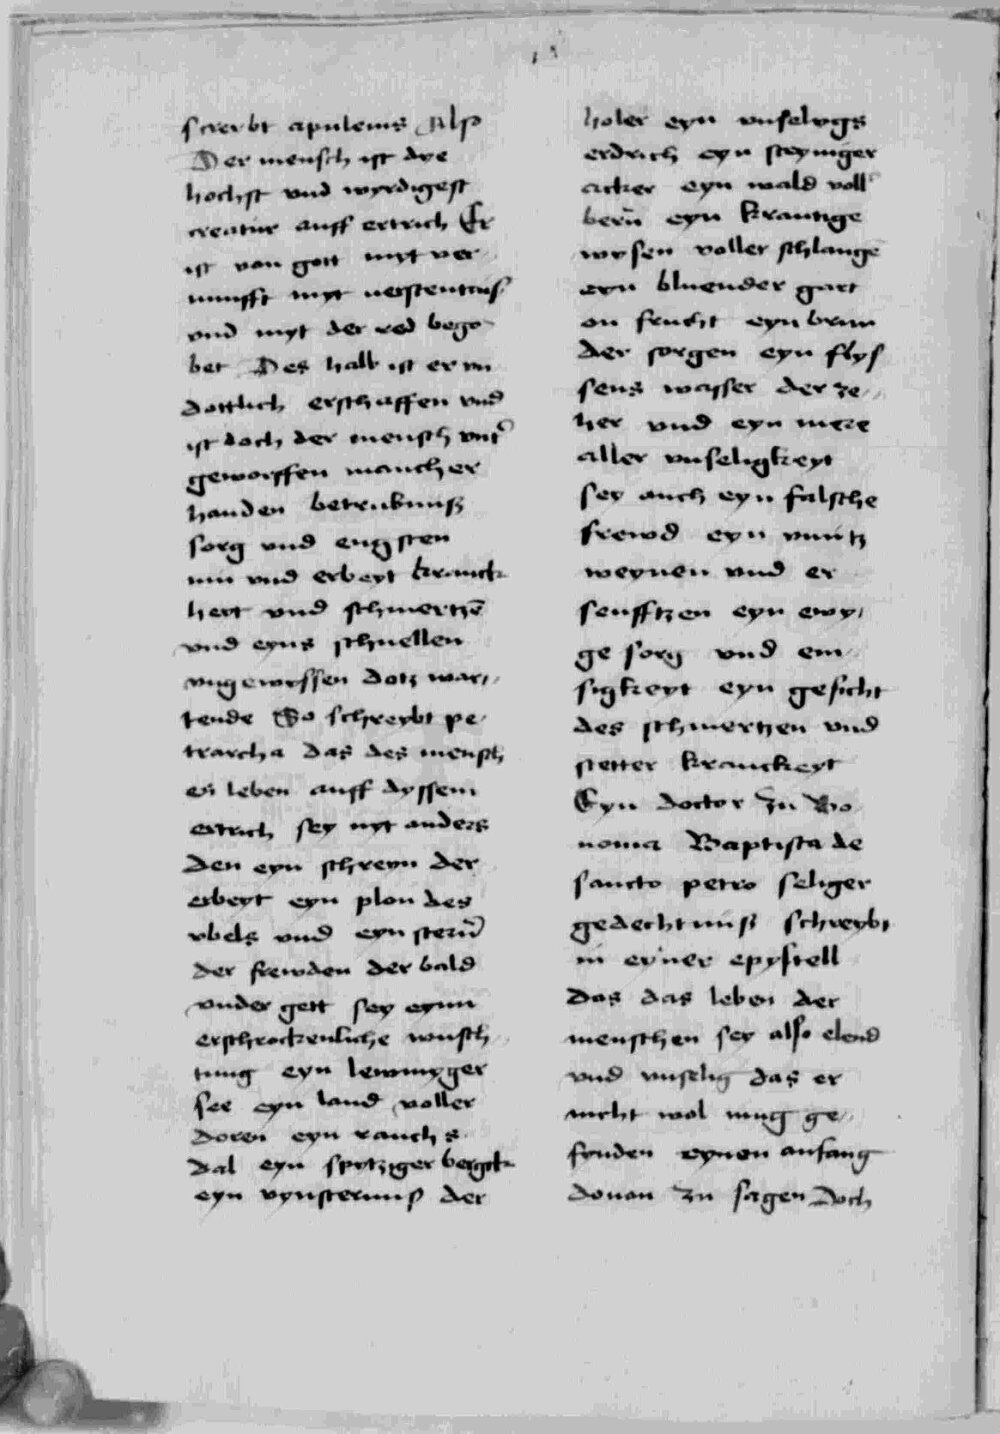 screybt apuleius Also
Der mensch ist dye
hochst vnd wyrdigest
creatur auff ertrich Er
ist von gott myt ver
nunfft myt verstentnuß
vnd myt der red bego
bet Des halb ist er vn
dottlich erschaffen vnd
ist doch der mensch vnt̃
geworffen mancher
handen betrubnuß
sorg vnd engsten
mü vnd erbeyt kranck
heyt vnd schmertzē
vnd eyns schnellen
vngewyssen dotz war
tende So schreybt pe
trarcha das des mensch
en leben auff dyssem
ertrich sey nyt anders
den eyn schreyn der
erbeyt eyn plon des
vbels vnd eyn stern̄
der frewden der bald
vnder gett sey eynn
erschrockenliche wusch
tung eyn lewmyger
see eyn land voller
doren eyn rauchs
dal eyn spytziger bergck
eyn vynsternuß der
holer eyn vnselygs
erdrich eyn steyniger
acker eyn wald voll
bern̄ eyn krautige
wysen voller schlangē
eyn bluender gart
on frucht eyn brun
der sorgen eyn flys
sens wasser der ze
her vnd eyn mere
aller vnseligkeyt
sey auch eyn falsche
frewd eyn vnnütz
weynen vnd er
seufftzen eyn ewy
ge sorg vnd em
sigkeyt eyn gesicht
des schmertzen vnd
stetter kranckeyt
Eyn doctor zu Bo
nonia Baptista de
sancto petro seliger
gedechtnuß schreybt
in eyner epystell
das das leben der
menschen sey also elend
vnd vnselig das er
nicht wol mug ge
fynden eynen anfang
douon zu sagen Doch